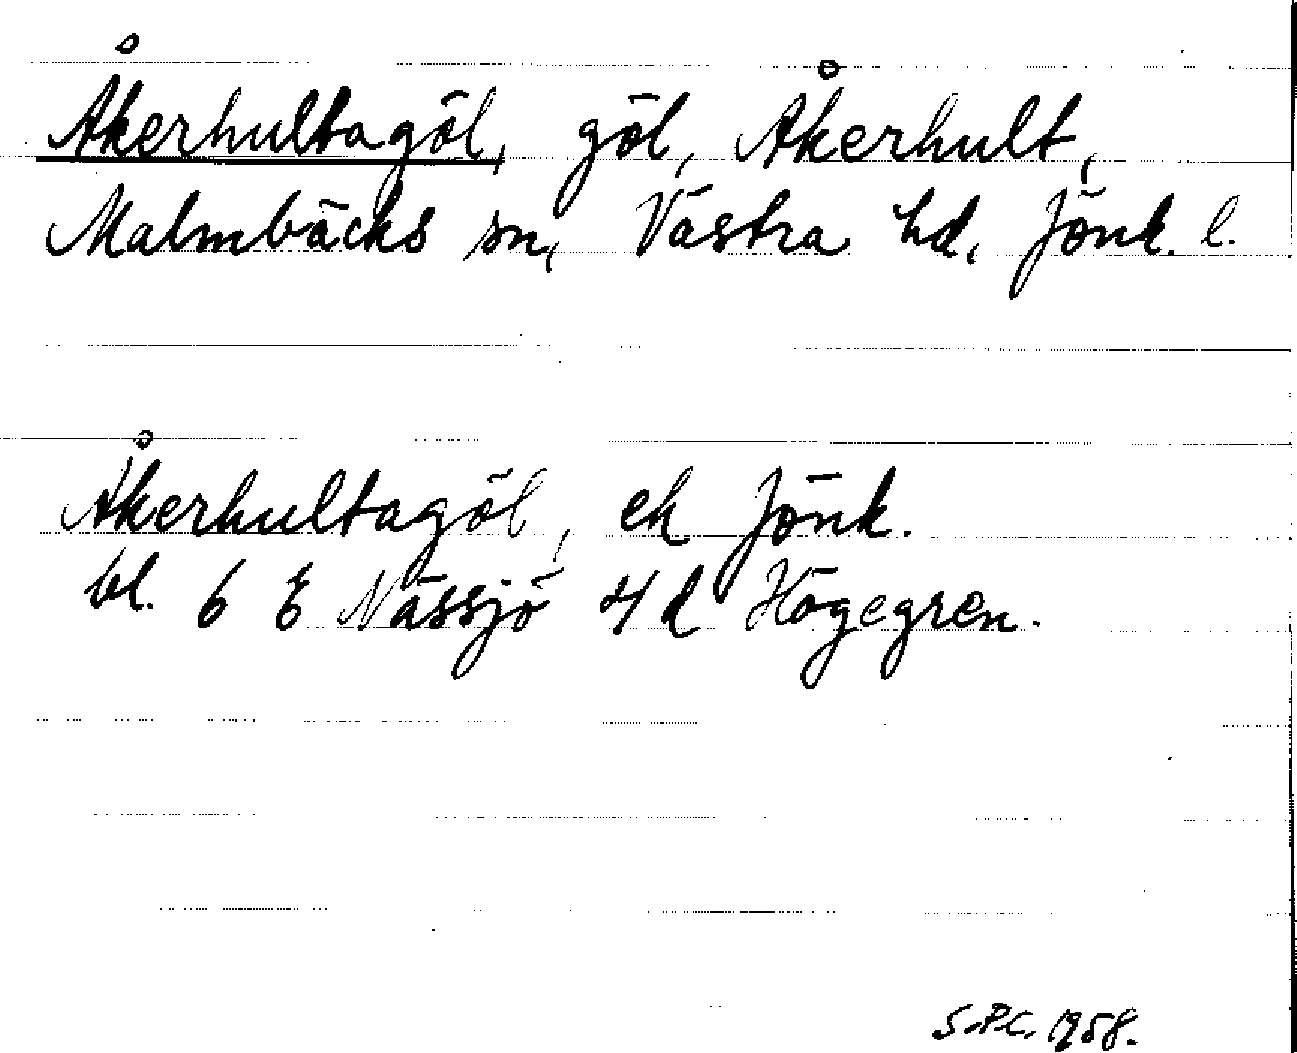 Åkerhultagöl, göl, Åkerhult,
Malmbäcks sn, Västra hd, Jönk. l.
Åkerhultagöl, ek Jönk.
bl. 6 E Nässjö 4 d Högegren.
S.P.C. 1958.